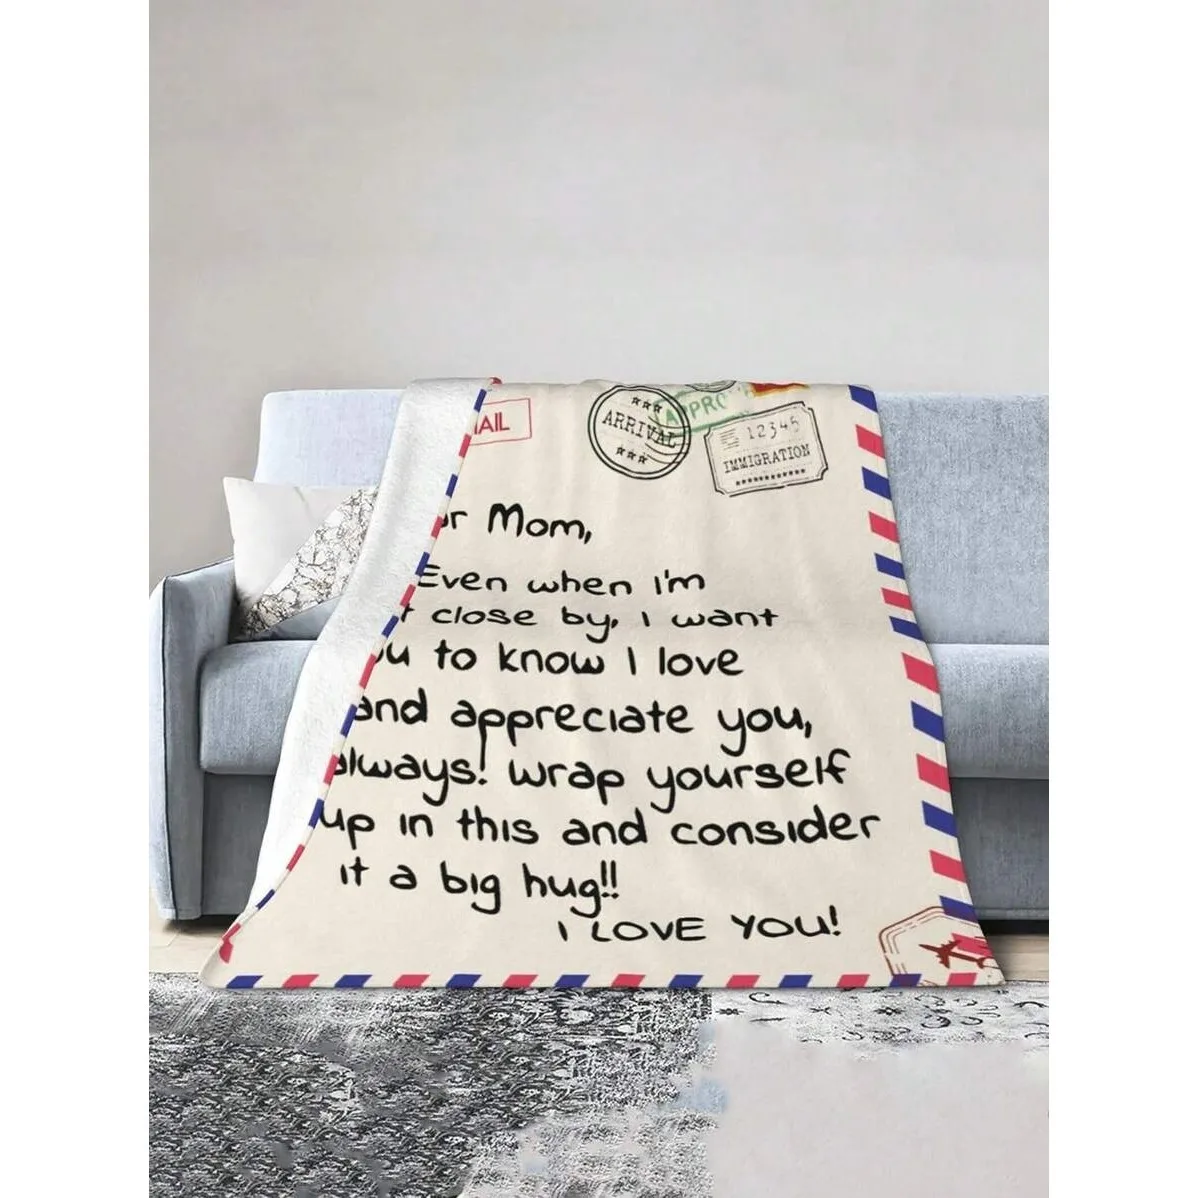 AIL
ARRIVAL
APPR
12345
IMMIGRATION
r Mom,
Even when I'm
close by, I want
u to know I love
and appreciate you,
always! wrap yourself
up in this and consider
it a big hug!!
I LOVE YOU!